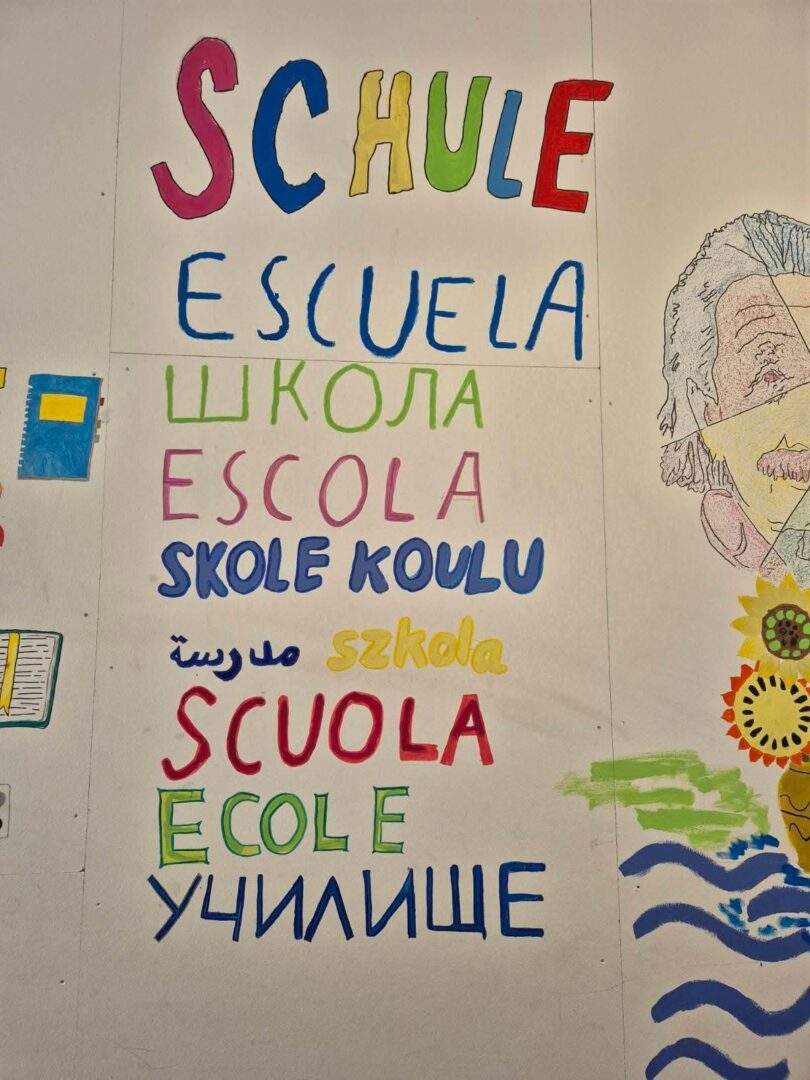 SCHULE
ESCUELA
ШКОЛА
ESCOLA
SKOLE KOULU
مدرسة szkola
SCUOLA
ECOLE
УЧИЛИЩЕ